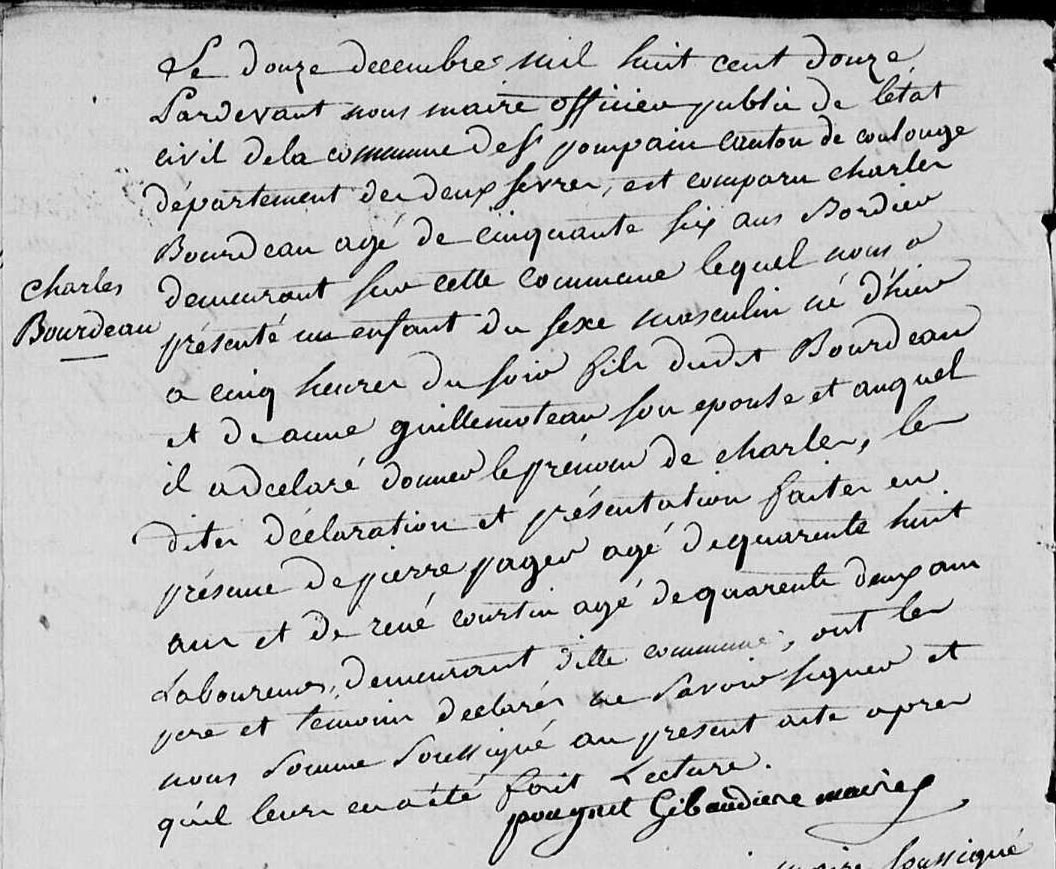 Le douze decembre mil huit cent douze
Pardevant nous maire officier public de létat
civil de la commune de St pompain canton de coulonge
département des deux sevres, est comparu charles
Bourdeau agé de cinquante six ans Bordier
demeurant sur cette commune lequel nous a
charles
Bourdeau
présenté un enfant du sexe masculin né d'hier
a cinq heures du soir fils dudit Bourdeau
et de anne guillemoteau son epouse et auquel
il a déclaré donner le prénom de charles, les
dites déclaration et présentation faites en
présence de pierre pager agé de quarente huit
ans et de rené courtin agé de quarente deux ans
Laboureurs, demeurant dite commune, ont les
pere et temoins declarés ne Savoir signer et
nous Somme Soussigné au present acte apres
qu'il leurs en a été fait Lecture.
pougnet Gibaudiere maire
maire soussigné